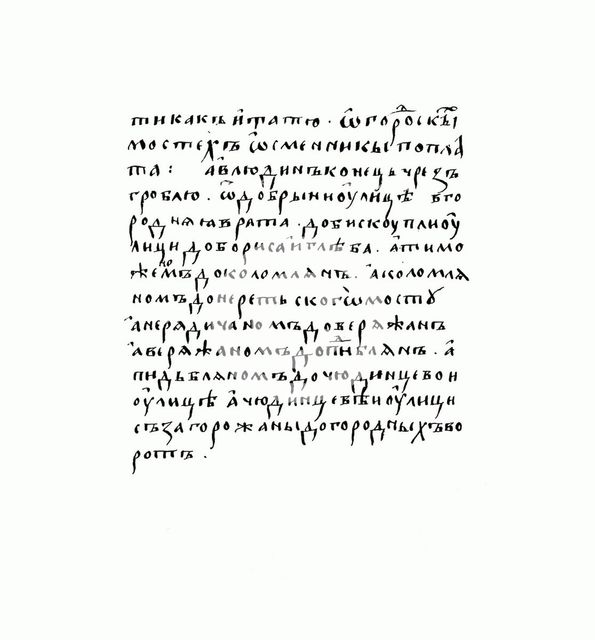 тикакъ и́ татю · ѿ горо́дскы́і
мостехъ ѿсменникы поплА
та : а́влюдинъ конець чрезъ
греблю · ѿ добрыни оу́лицѣ вго
роднꙗꙗ врята · до пискоуплиоу́
лици до бориса и глѣба · а́ тимо
жемъ до коломлянъ · а́ коломля
номъ до нереть скогѡ мостꙋ
а́нерядичаномъ до вережанъ
а́вережаномъ до пидьблянъ · а́
пидьбляномъ до чюдинцевои
оу́лицѣ а́чюдинцевѣи оу́лици
съзагорожаны до городныхъ во
ротъ ·